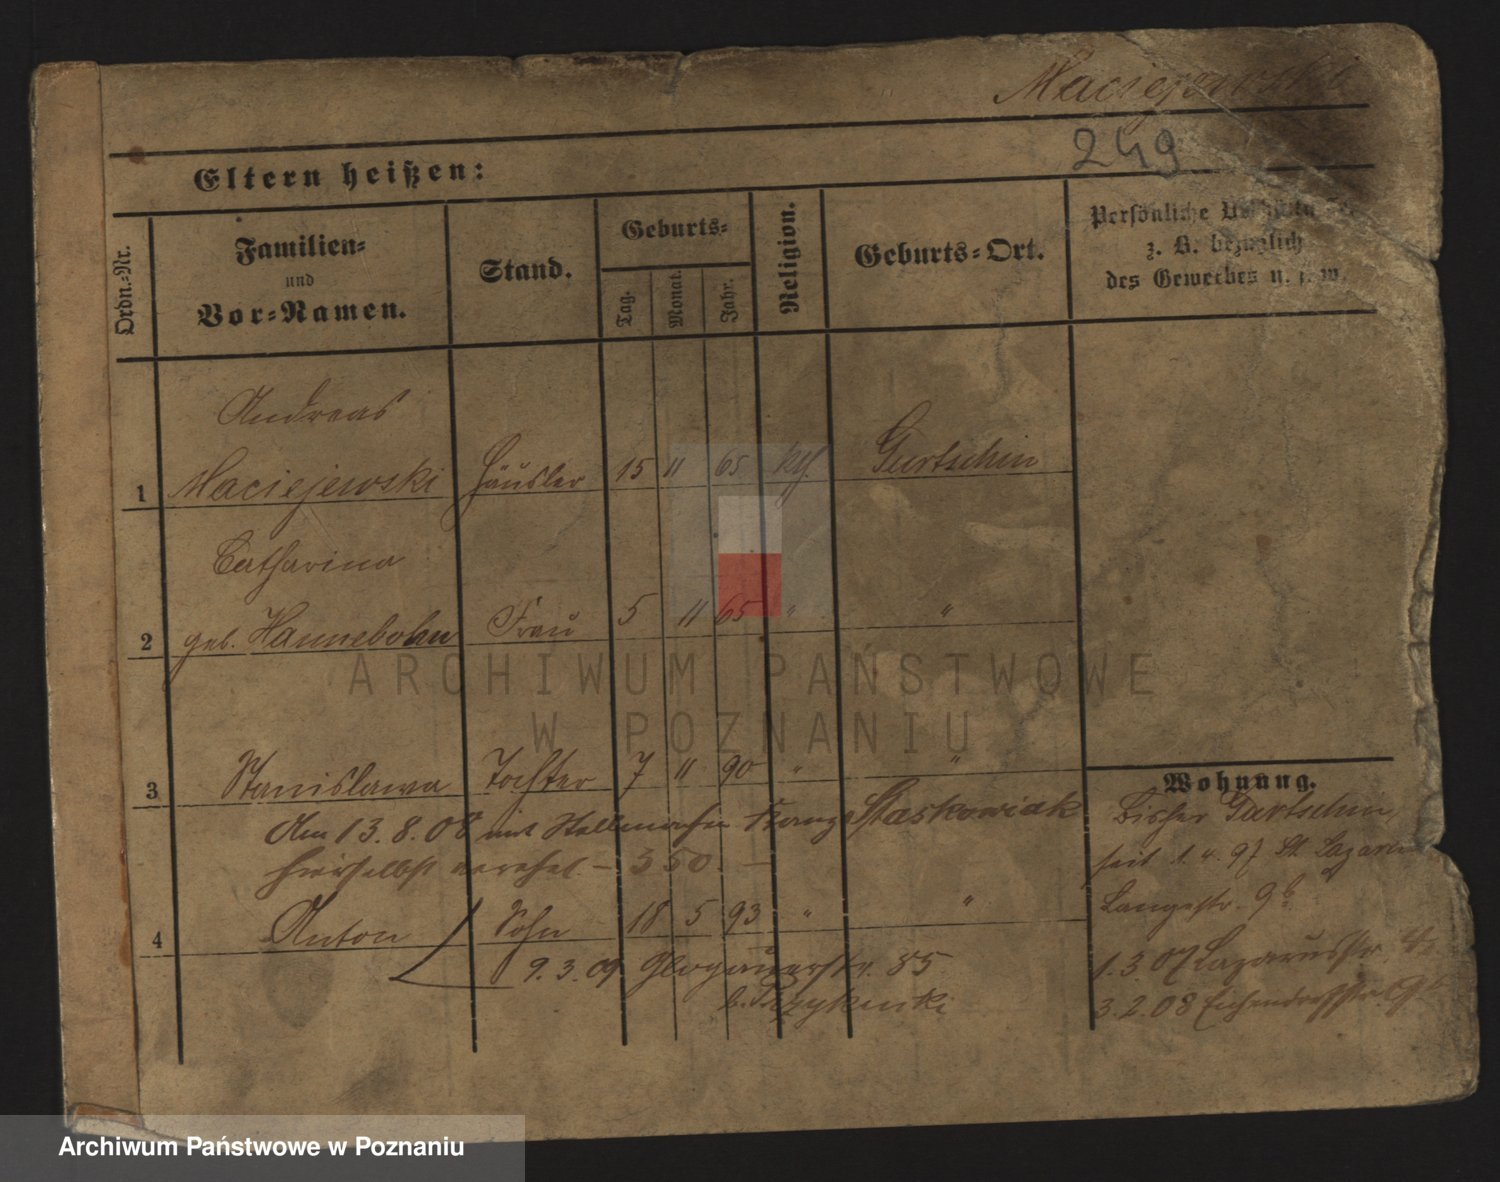 Maciejewski
249
Eltern heißen:
Ordn.-Nr.
Familien-
und
Vor-Namen.
Stand.
Geburts-
Tag.
Monat.
Jahr.
Religion.
Geburts-Ort.
Persönliche
z. B. bezüglich
des Gewerbes u. s. w.
Andreas
1 Maciejewski Häusler 15 11 65 kth. Gurtschin
Catharina
2 geb. Hannebohn Frau 5 11 65 " "
3 Stanislawa Tochter 7 11 90 " "
Am 13.8.08 mit Franz Staskowiak
hierselbst verehel. – 350. –
4 Anton Sohn 18 5 93 " "
9.3.09 Glogauerstr. 85
b.
Wohnung.
Bisher Gurtschin,
seit 1. 4. 97 St. Lazarus
Langestr. 9b
1.3.07 Lazarusstr.
3.2.08 Eichendorffstr.
ARCHIWUM PAŃSTWOWE
W POZNANIU
Archiwum Państwowe w Poznaniu